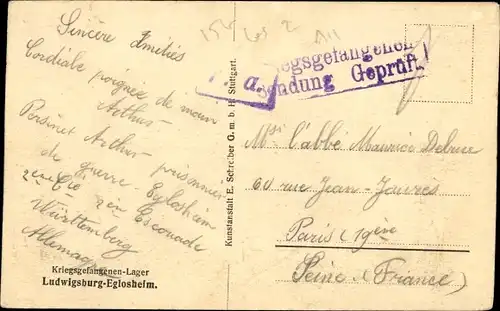 Sincère Amitiés
Cordiale poignée de main
Arthur
Persinet Arthur prisonnier
de guerre - Eglosheim
2ème Cie 2en Escouade
Württemberg
Allemagne
Kriegsgefangenen-Lager
Ludwigsburg-Eglosheim.
Kunstanstalt E. Schreiber G. m. b. H. Stuttgart.
Kriegsgefangenen
Sendung Geprüft!
a.
Msr l'abbé Maurice
60 rue Jean-Jaurès
Paris (19ème
Seine (France)